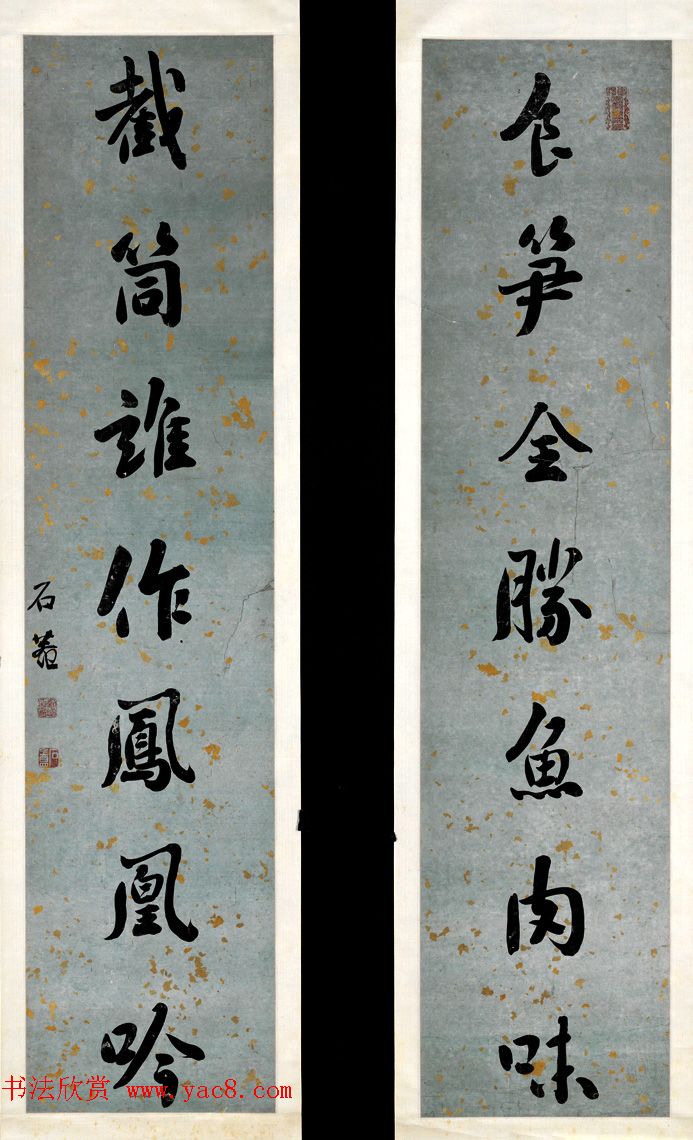 食笋全勝魚肉味
截筒誰作鳳凰吟
石菴
书法欣赏 www.yac8.com